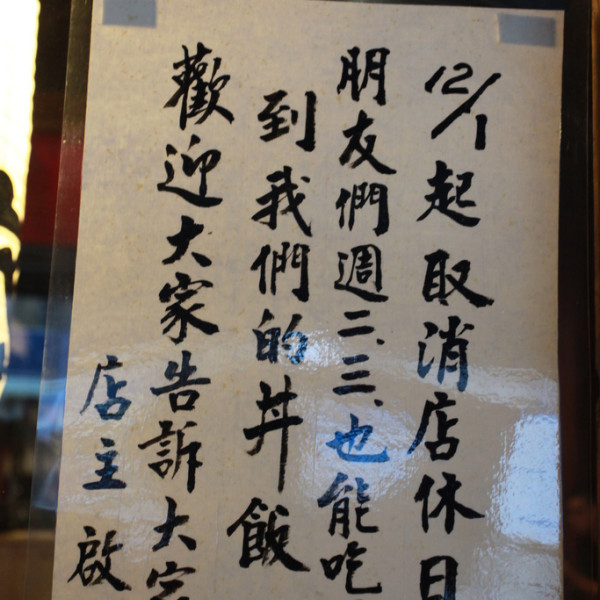 12/1起取消店休日
朋友們週二、三、也能吃
到我們的丼飯
歡迎大家告訴大家
店主 啟